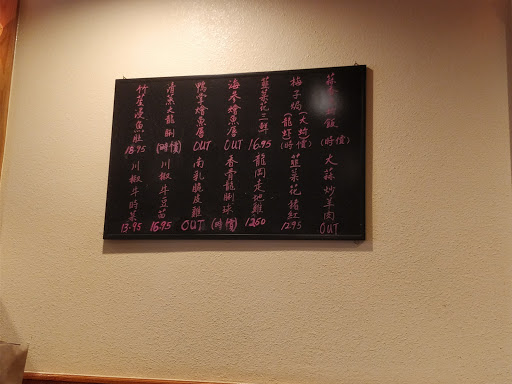 飯(時價)
梅子焗(大蝦)(龍蝦)(時價)
韮菜花三鮮 16.95
海參燴魚唇 OUT
鴨掌燴魚唇 OUT
清蒸大龍脷(時價)
竹笙浸魚肚 18.95
大蒜炒羊肉 OUT
韮菜花豬紅 12.95
龍岡走地雞 12.50
香骨龍脷球(時價)
南乳脆皮雞 OUT
川椒牛豆苗 16.95
川椒牛時菜 13.95